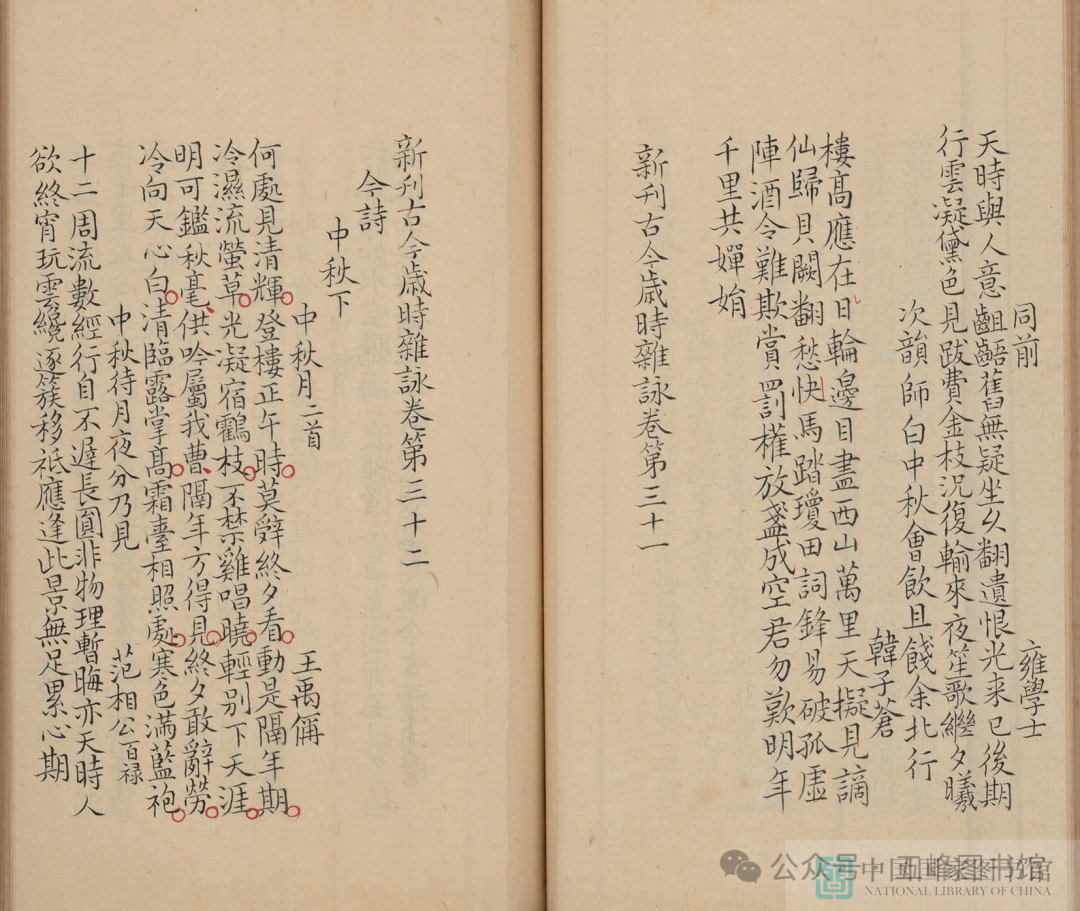 同前　雍學士
天時與人意齟齬舊無疑坐久翻遺恨光来已後期
行雲凝黛色見跋費金枝況復輸來夜笙歌繼夕曦
次韻師白中秋會飲且餞余北行
韓子蒼
樓髙應在日輪邊目盡西山萬里天擬見謫
仙歸貝闕翻愁快馬踏瓊田詞鋒易破孤虛
陣酒令難欺賞罰權放盞成空君勿歎明年
千里共嬋娟
新刊古今歳時雜詠卷第三十一
新刊古今歳時雜詠卷第三十二
今詩
中秋下
中秋月二首　王禹偁
何處見清輝登樓正午時莫辤終夕看動是隔年期
冷濕流螢草光凝宿鸖枝不禁雞唱曉輕别下天涯
明可鑑秋毫供吟屬我曹隔年方得見終夕敢辭勞
冷向天心白清臨露掌髙霜臺相照處寒色满藍袍
中秋待月夜分乃見　范相公百禄
十二周流數經行自不遅長圎非物理暫晦亦天時人
欲終宵玩雲纔逐簇移祇應逢此景無足累心期
公众号·五峰图书馆
中国国家图书馆
NATIONAL LIBRARY OF CHINA